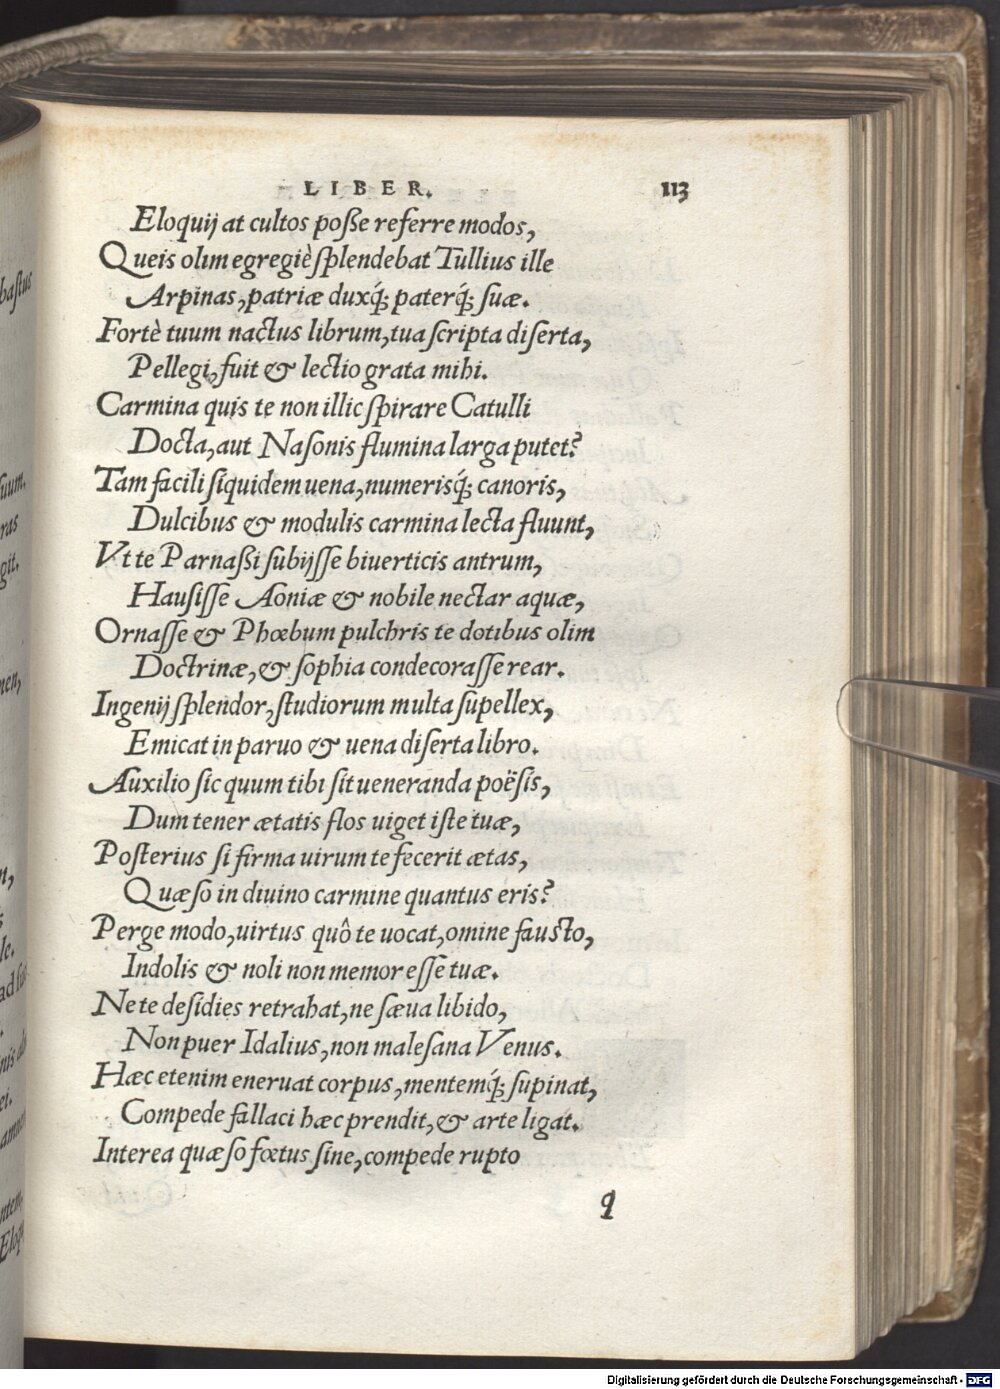 LIBER. 113
Eloquij at cultos poſſe referre modos,
Queis olim egregiè ſplendebat Tullius ille
Arpinas, patriæ duxq́; paterq́; ſuæ.
Fortè tuum nactus librum, tua ſcripta diſerta,
Pellegi, fuit & lectio grata mihi.
Carmina quis te non illic ſpirare Catulli
Docta, aut Naſonis flumina larga putet?
Tam facili ſiquidem uena, numerisq́; canoris,
Dulcibus & modulis carmina lecta fluunt,
Vt te Parnaßi ſubijſſe biuerticis antrum,
Hauſiſſe Aoniæ & nobile nectar aquæ,
Ornaſſe & Phœbum pulchris te dotibus olim
Doctrinæ, & ſophia condecoraſſe rear.
Ingenij ſplendor, ſtudiorum multa ſupellex,
Emicat in paruo & uena diſerta libro.
Auxilio ſic quum tibi ſit ueneranda poëſis,
Dum tener ætatis flos uiget iſte tuæ,
Poſterius ſi firma uirum te fecerit ætas,
Quæſo in diuino carmine quantus eris?
Perge modo, uirtus quô te uocat, omine fauſto,
Indolis & noli non memor eſſe tuæ.
Ne te deſidies retrahat, ne ſæua libido,
Non puer Idalius, non maleſana Venus.
Hæc etenim eneruat corpus, mentemq́; ſupinat,
Compede fallaci hæc prendit, & arte ligat.
Interea quæſo fœtus ſine, compede rupto
q
Digitalisierung gefördert durch die Deutsche Forschungsgemeinschaft - DFG